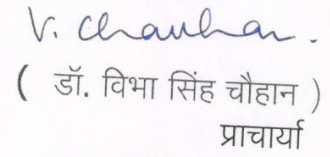 V. Chauhan.
( डॉ. विभा सिंह चौहान )
प्राचार्या